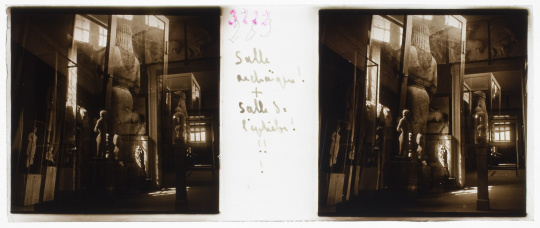 3223
Salle
archaïque!
+
Salle de
l'éphèbe!
!!
!